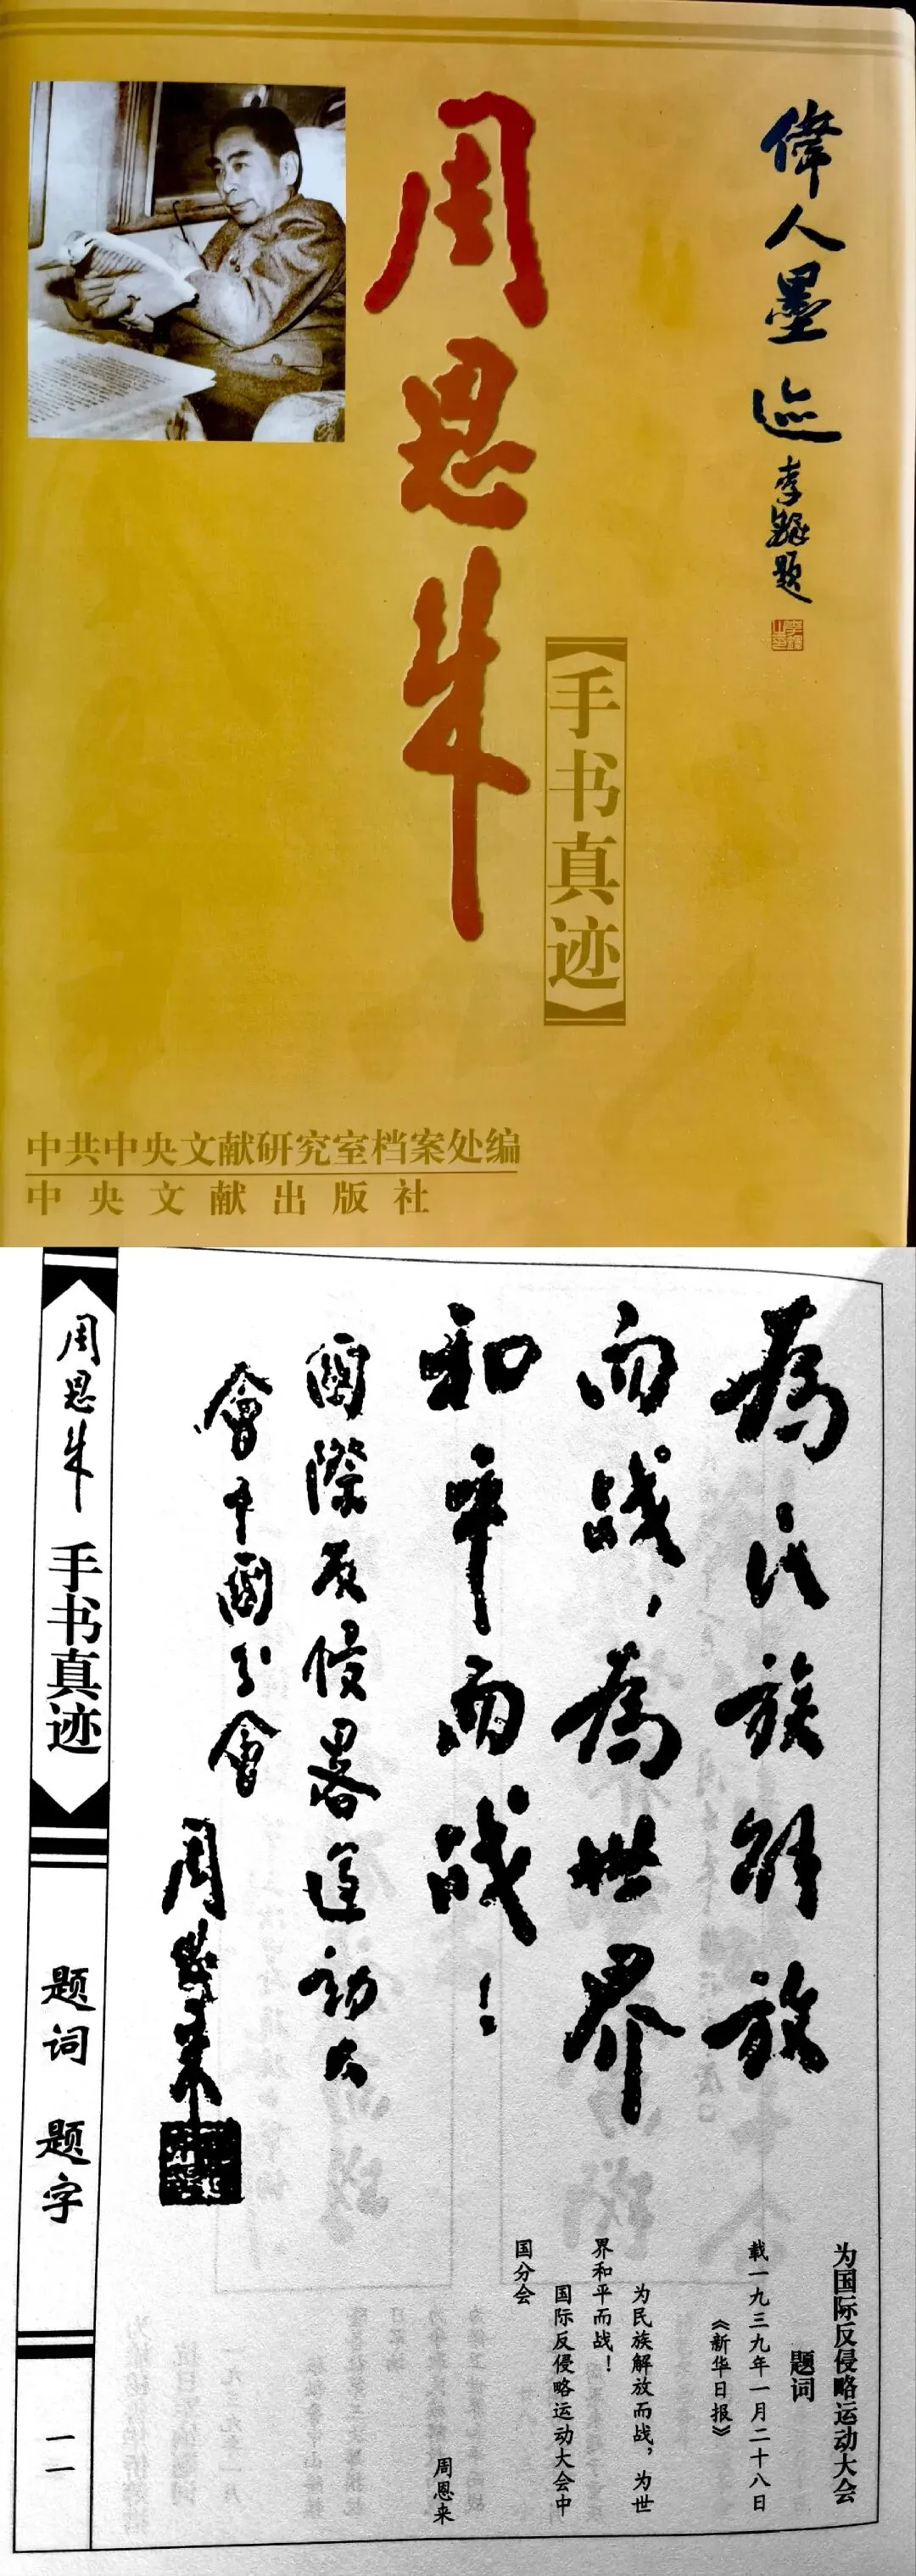 偉人墨迹
李鐸題
周恩来
手书真迹
中共中央文献研究室档案处编
中央文献出版社
為民族解放
而战，為世界
和平而战！
國際反侵畧運動大
會中國分會
周恩来
为国际反侵略运动大会
题词
载一九三九年一月二十八日
《新华日报》
为民族解放而战，为世
界和平而战！
国际反侵略运动大会中
国分会
周恩来
周恩来
手书真迹
题词 题字
一一